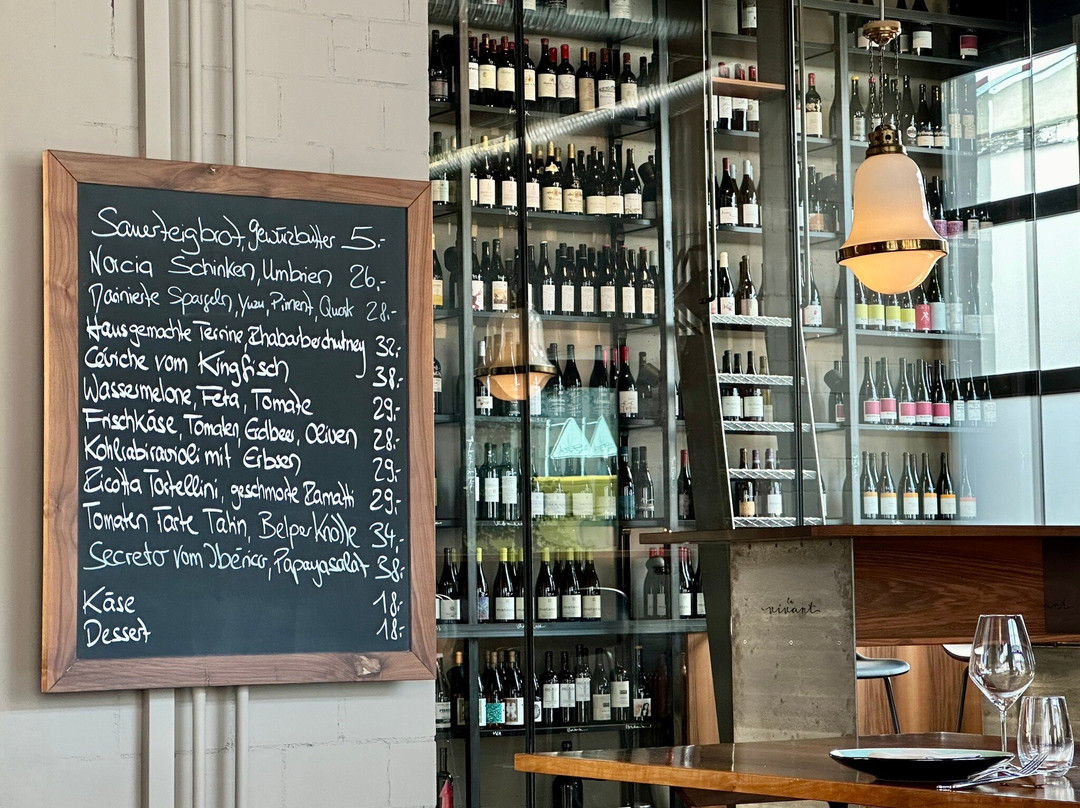 Sauerteigbrot, Gewürzbutter 5.-
Norcia Schinken, Umbrien 26.-
Marinierte Spargeln, Yuzu, Piment, Quark 28.-
Hausgemachte Terrine, Rhabarberchutney 32.-
Ceviche vom Kingfisch 38.-
Wassermelone, Feta, Tomate 29.-
Frischkäse, Tomaten, Erdbeer, Oliven 28.-
Kohlrabiravioli mit Erbsen 29.-
Ricotta Tortellini, geschmorte Tomatli 29.-
Tomaten Tarte Tatin, Belper Knolle 34.-
Secreto vom Ibérico, Papayasalat 38.-
Käse 18.-
Dessert 18.-
le
vivant